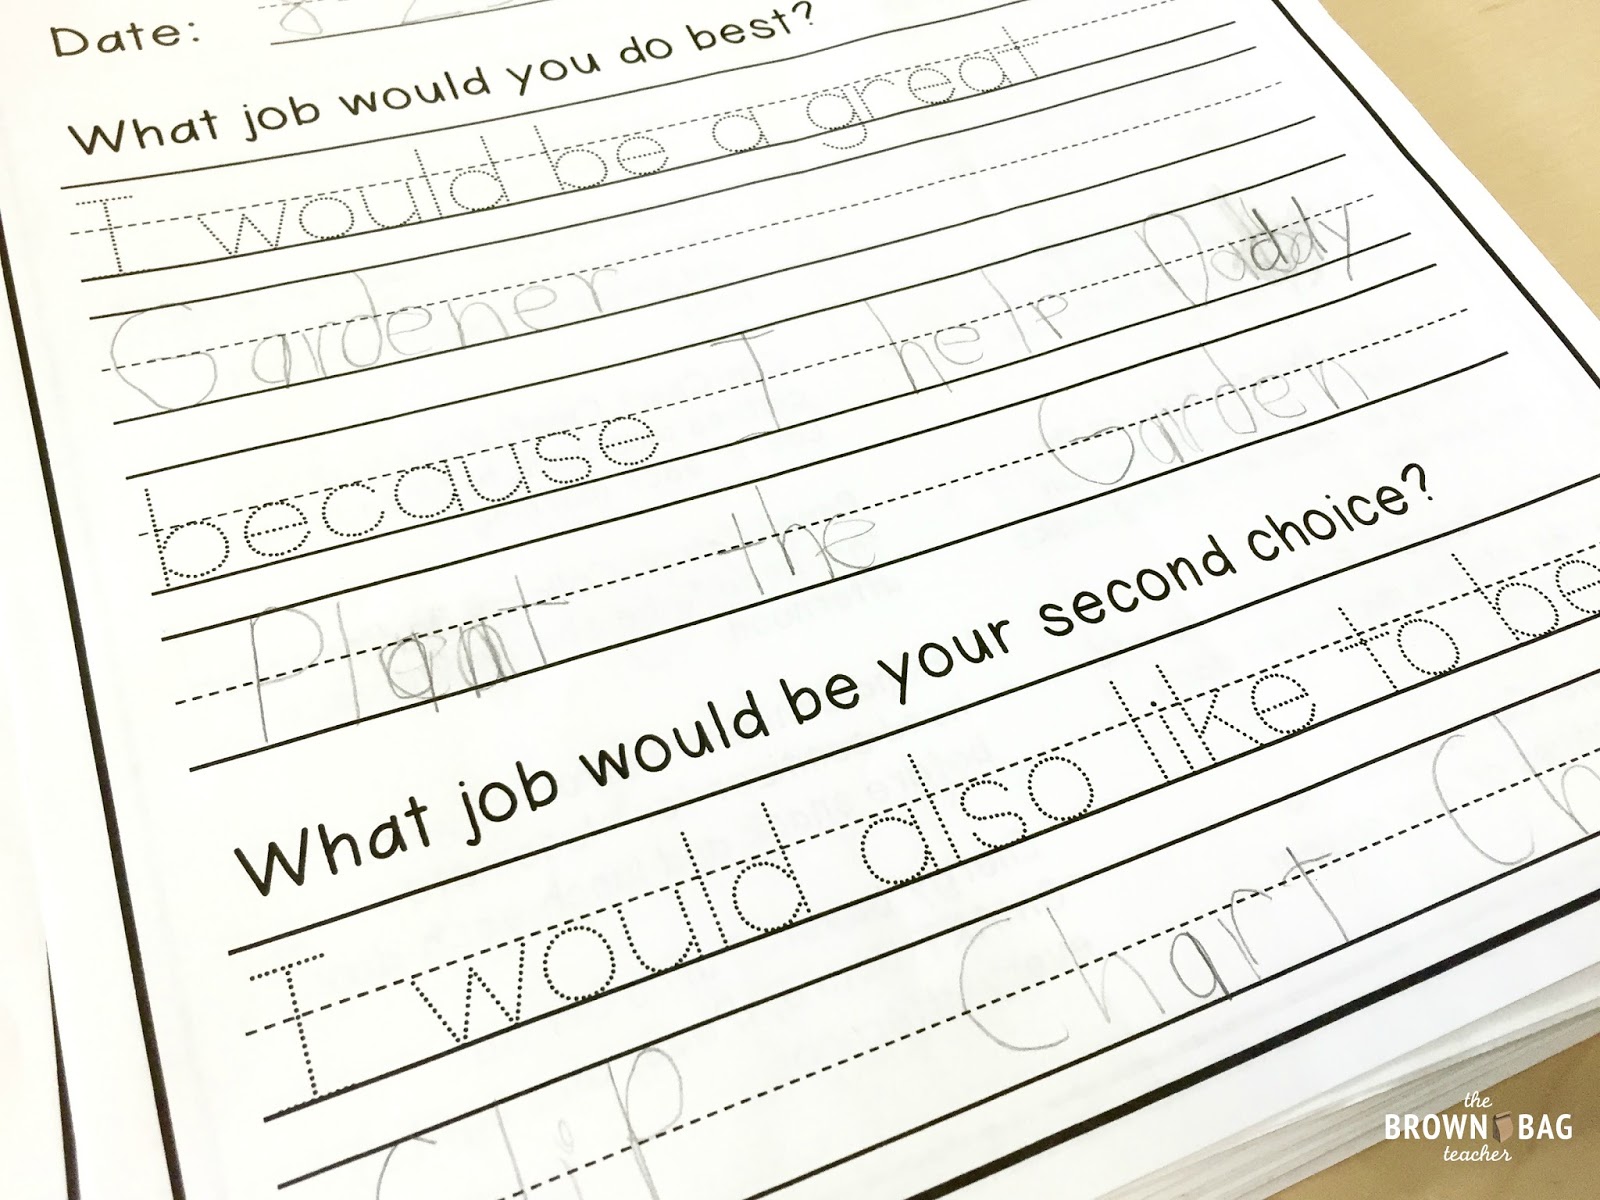 Date:
What job would you do best?
I would be a great
Gardener
because I help Daddy
Plant the Garden
What job would be your second choice?
I would also like to be
Clip Chart Ch
the
BROWN BAG
teacher